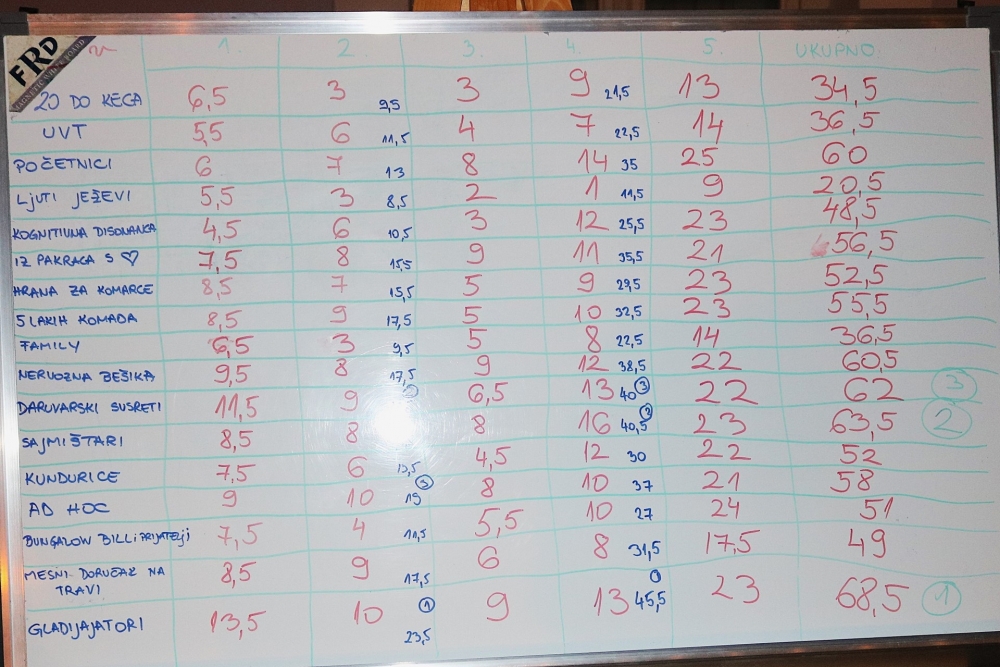 FRD
MAGNETIC WHITE BOARD
1. 2 3. 4. 5. UKUPNO
20 DO KECA 6,5 3 9,5 3 9 21,5 13 34,5
UVT 5,5 6 11,5 4 7 22,5 14 36,5
POČETNICI 6 7 13 8 14 35 25 60
LJUTI JEŽEVI 5,5 3 8,5 2 1 11,5 9 20,5
KOGNITIVNA DISONANCA 4,5 6 10,5 3 12 25,5 23 48,5
IZ PAKRACA S ♡ 7,5 8 15,5 9 11 35,5 21 56,5
HRANA ZA KOMARCE 8,5 7 15,5 5 9 29,5 23 52,5
5 LAKIH KOMADA 8,5 9 17,5 5 10 32,5 23 55,5
FAMILY 6,5 3 9,5 5 8 22,5 14 36,5
NERVOZNA BEŠIKA 9,5 8 17,5 9 12 38,5 22 60,5
DARUVARSKI SUSRETI 11,5 9 6,5 13 40 3 22 62 3
SAJMIŠTARI 8,5 8 8 16 40,5 2 23 63,5 2
KUNDURICE 7,5 6 13,5 4,5 12 30 22 52
AD HOC 9 10 19 3 8 10 37 21 58
BUNGALOW BILL i PRIJATELJI 7,5 4 11,5 5,5 10 27 24 51
MESNI DORUČAK NA
TRAVI 8,5 9 17,5 6 8 31,5 17,5 49
GLADIJAJATORI 13,5 10 1 23,5 9 13 45,5 1 23 68,5 1